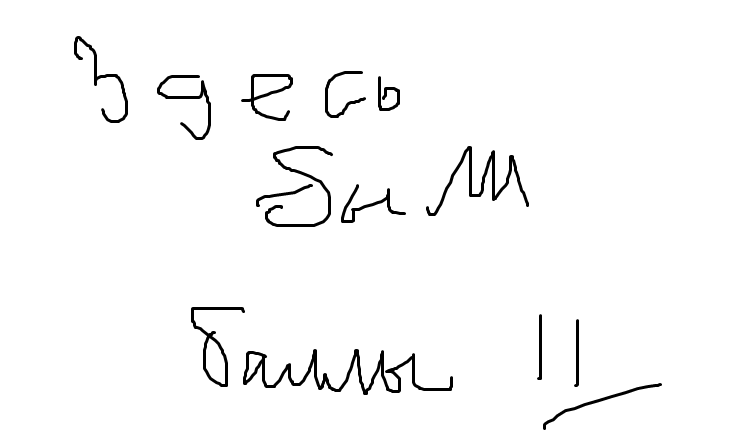 здесь
был
баллы 11